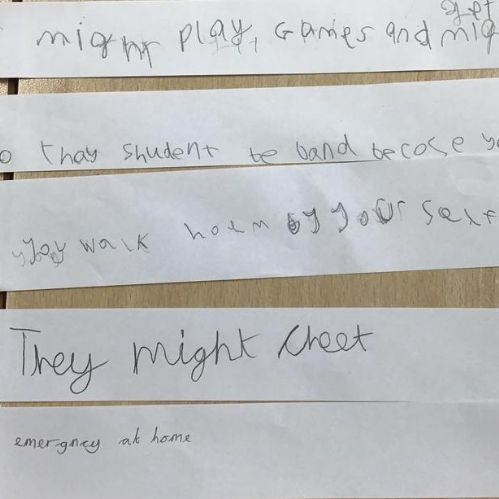 get
might play games and mig
o thay shudent be band becose yo
you walk hoem by your self
They might cheet
emergncy at home